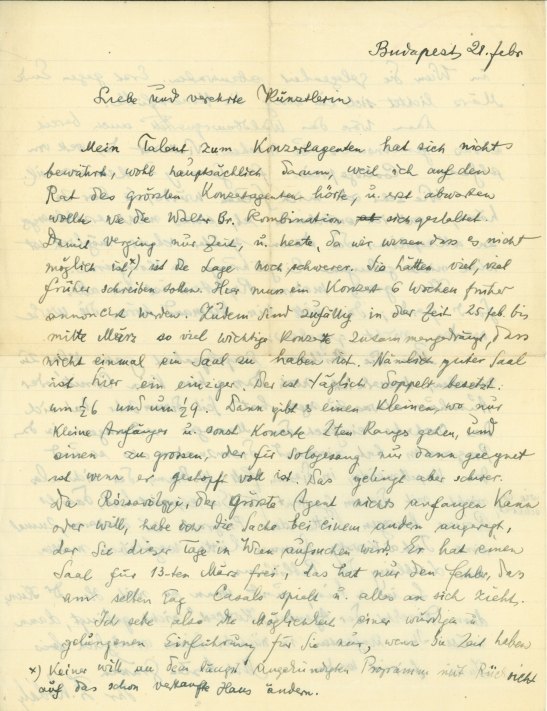 Budapest, 21. febr
Liebe und verehrte Künstlerin
Mein Talent zum Konzertagenten hat sich nichts
bewährt, wohl hauptsächlich darum, weil ich auf den
Rat des grössten Konzertagenten hörte, u. erst abwarten
wollte wie die Walter Br. Kombination sich gestaltet.
Damit verging nur Zeit, u. heute, da wir wissen dass es nicht
möglich ist x) ist die Lage noch schwerer. Sie hätten viel, viel
früher schreiben sollen. Hier muss ein Konzert 6 Wochen früher
annonciert werden. Zudem sind zufällig in der Zeit 25 feb. bis
mitte März so viel wichtige Konzerte zusammengedrängt, dass
nicht einmal ein Saal zu haben ist. Nämlich guter Saal
ist hier ein einziger. Der ist täglich doppelt besetzt.
um ½6 und um ½9. Dann gibt s einen kleinen, wo nur
kleine Anfänger u. sonst Konzerte 2ten Ranges gehen, und
einen zu grossen, der für Sologesang nur dann geeignet
ist wenn er gestopft voll ist. Das gelingt aber schwer.
Da Rózsavölgyi, der grösste Agent nichts anfangen kann
oder will, habe ich die Sache bei einem andern angeregt,
der Sie dieser Tage in Wien aufsuchen wird. Er hat einen
Saal für 13-ten März frei, das hat nur den Fehler, dass
am selben Tag Casals spielt u. alles an sich zieht.
Ich sehe also die Möglichkeit einer würdigen u
gelungenen Einführung für Sie nur, wenn Sie Zeit haben
x) Keiner will an dem längst angekündigten Programm mit Rücksicht
auf das schon verkaufte Haus ändern.